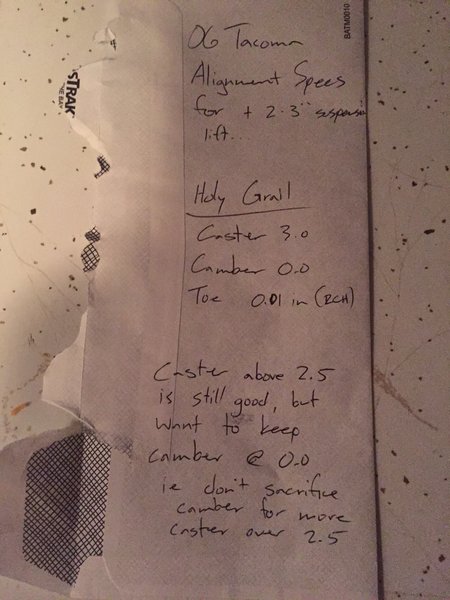 06 Tacoma
Alignment Specs
for + 2.3" suspension
lift...
Holy Grail
Caster 3.0
Camber 0.0
Toe 0.01 in (RCH)
Caster above 2.5
is still good, but
want to keep
camber @ 0.0
ie don't sacrifice
camber for more
caster over 2.5
BATM0010
STRAK
THE BAY